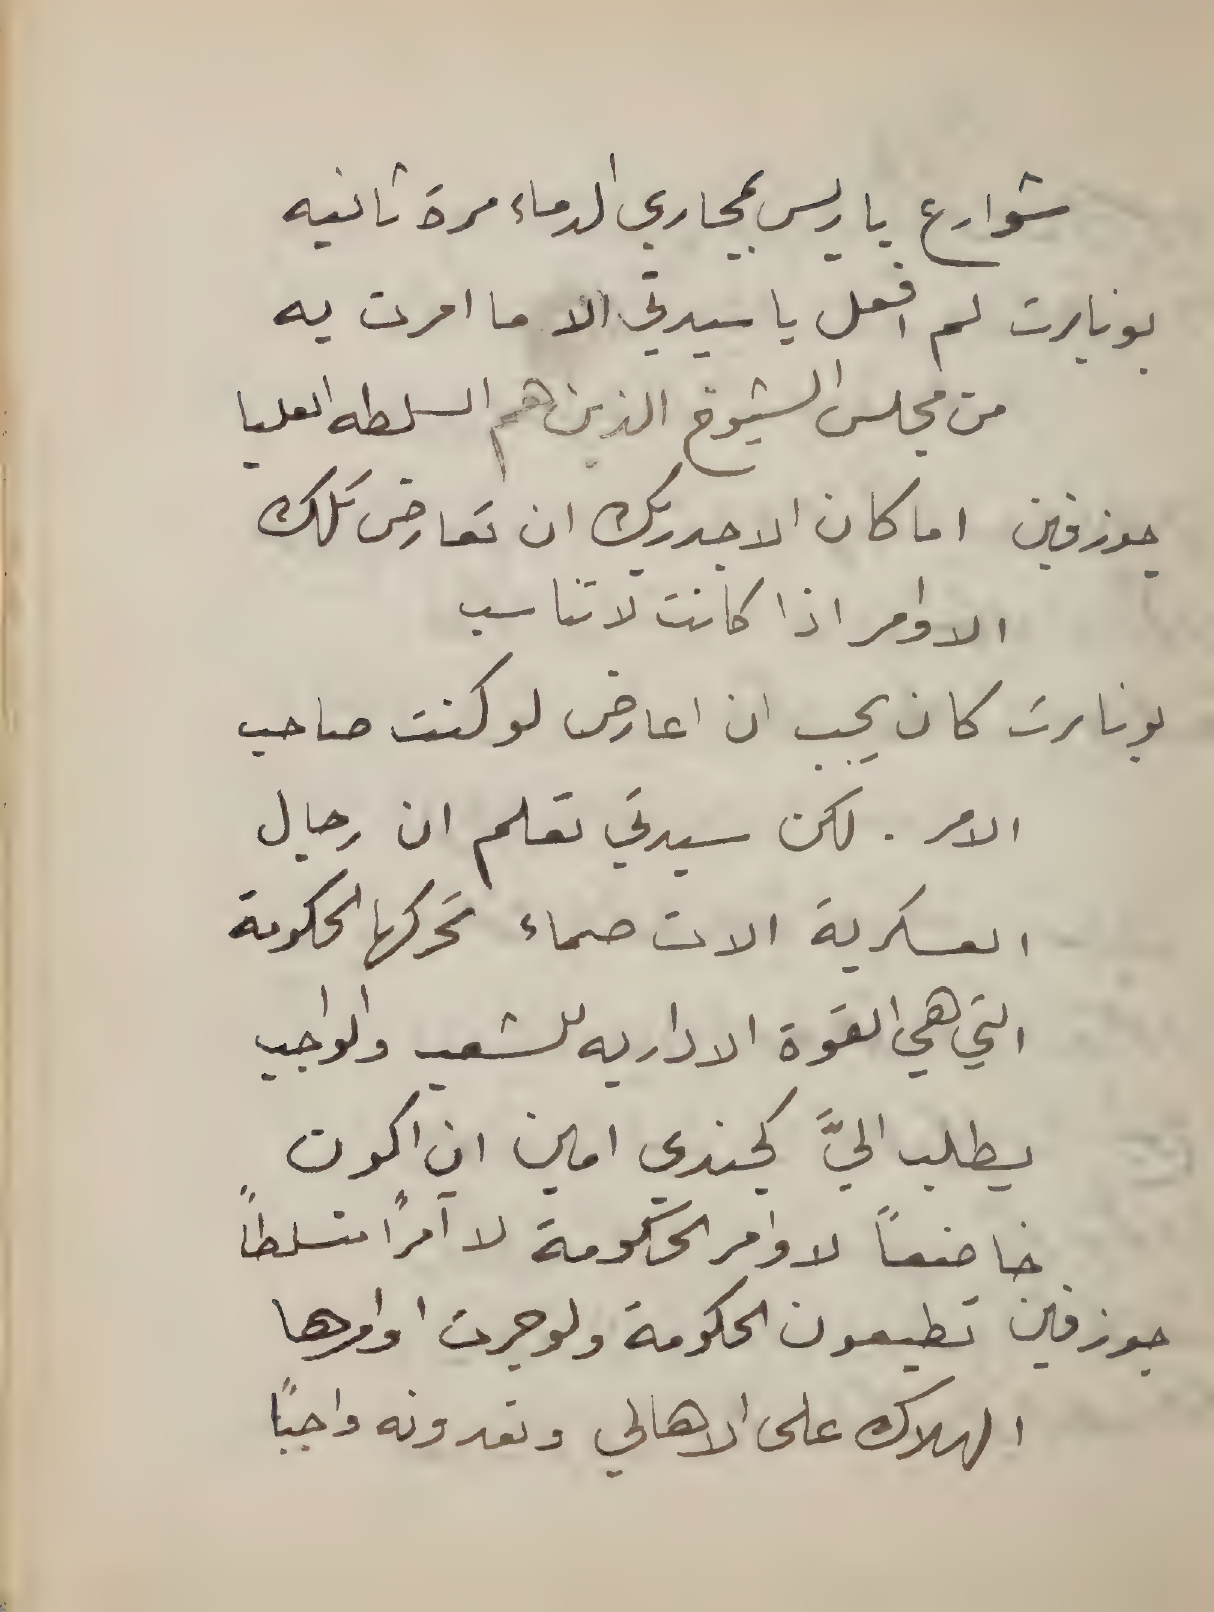 شوارع باريس بمجاري الدماء مرة ثانيه
بونابرت لم افعل يا سيدتي الا ما امرت به
من مجلس الشيوخ الذين هم السلطه العليا
جوزفين اما كان الاجدر بك ان تعارض تلك
الاوامر اذا كانت لا تناسب
بونابرت كان يجب ان اعارض لو كنت صاحب
الامر . لكن سيدتي تعلم ان رجال
العسكرية الات صماء تحركها الحكومة
التي هي القوة الاداريه للشعب والواجب
يطلب اليَّ كجندي امين ان اكون
خاضعاً لاوامر الحكومة لا آمرًا متسلطاً
جوزفين تطيعون الحكومة ولو جرت اوامرها
الهلاك على الاهالي وتعدونه واجبًا